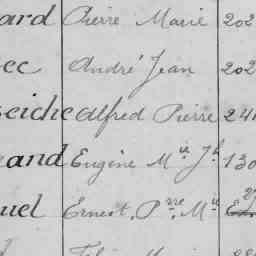 ard Pierre Marie 202
ec André Jean 202
eiche Alfred Pierre 241
and Eugène M.ie J.h 130
uel Ernest, P.re M.ie